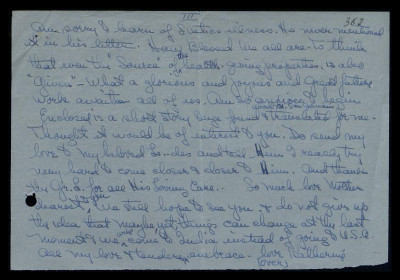 III
362
am sorry to learn of illness. He never mentioned
it in his letter. How Blessed we all are to think
that even the "Source" of the health-giving properties, is also
"Given" – What a glorious and joyous and great future
work awaiting all of us. Am so anxious to begin
Enclosed is a short story found & translated for me.
Thought it would be of interest to you. Do send my
love to my beloved and tell Him I really try
very hard to come closer & closer to Him. And thank
for all His Loving Care.. So much love Mother
dearest, we still hope to see you & do not give up
the idea that maybe yet things can change at the last
moment & we come to India instead of going U.S.A.
All my love & tender embrace. love Katherine
(over)